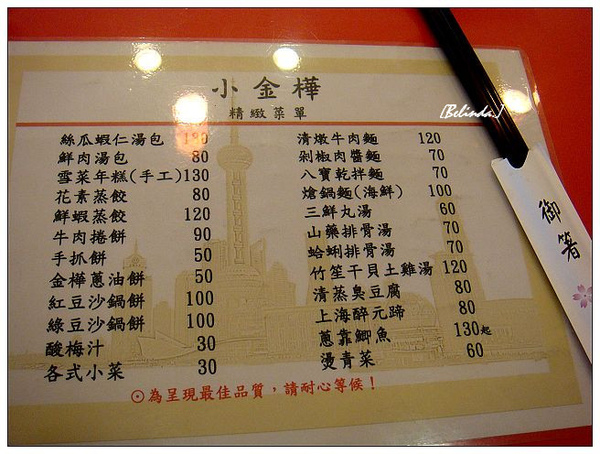 小金樺
精緻菜單
絲瓜蝦仁湯包 180
鮮肉湯包 80
雪菜年糕(手工)130
花素蒸餃 80
鮮蝦蒸餃 120
牛肉捲餅 90
手抓餅 50
金樺蔥油餅 50
紅豆沙鍋餅 100
綠豆沙鍋餅 100
酸梅汁 30
各式小菜 30
清燉牛肉麵 120
剁椒肉醬麵 70
八寶乾拌麵 70
熗鍋麵(海鮮) 100
三鮮丸湯 60
山藥排骨湯 70
蛤蜊排骨湯 70
竹笙干貝土雞湯 120
清蒸臭豆腐 80
上海醉元蹄 80
蔥靠鯽魚 130起
燙青菜 60
⊙為呈現最佳品質，請耐心等候！
{Belinda.}
御箸